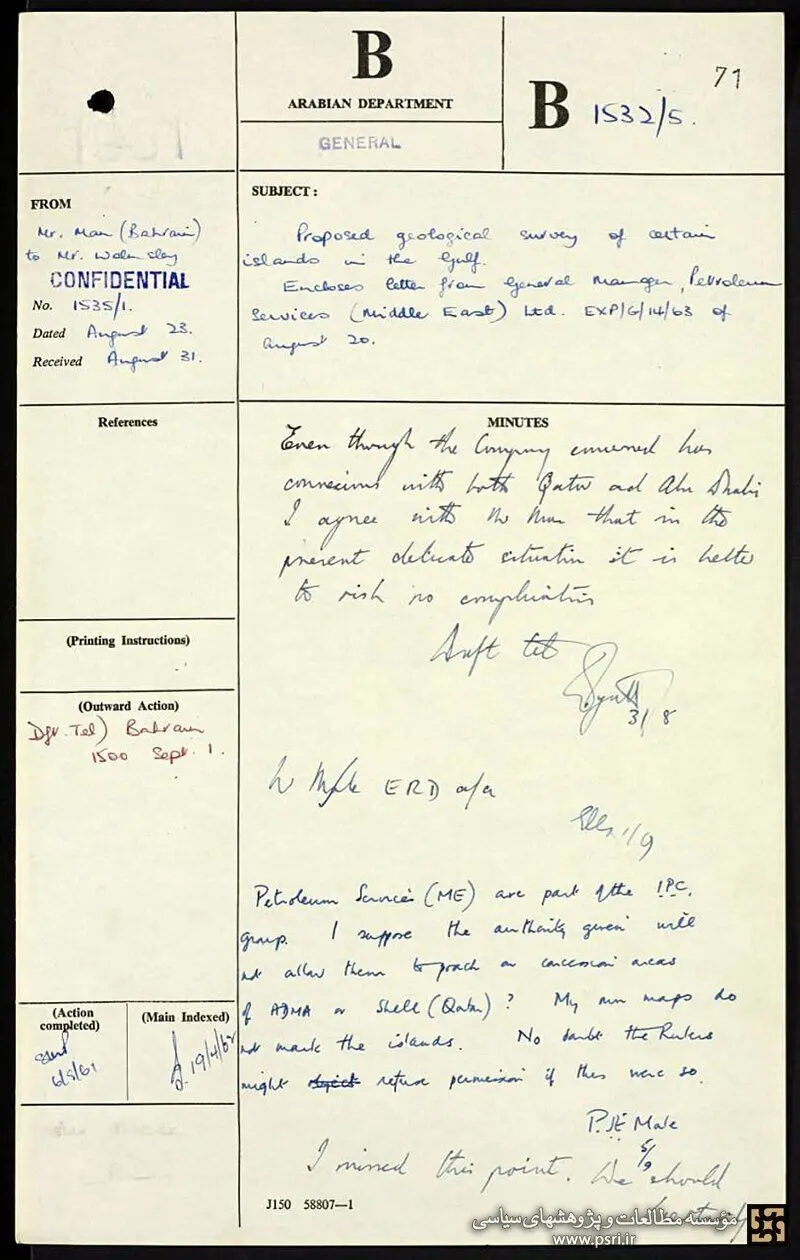 71
B
ARABIAN DEPARTMENT
GENERAL
B 1532/5.
FROM
Mr. Man (Bahrain)
to Mr. Walmsley
CONFIDENTIAL
No. 1535/1.
Dated August 23.
Received August 31.
SUBJECT:
Proposed geological survey of certain
islands in the Gulf.
Encloses letter from General Manager, Petroleum
Services (Middle East) Ltd. EXP/G/14/63 of
August 20.
References
(Printing Instructions)
(Outward Action)
Tel) Bahrain
1500 Sept. 1.
(Action
completed)
(Main Indexed)
19/4/62
MINUTES
Even though the Company concerned has
connexions with both Qatar and Abu Dhabi
I agree with Mr Man that in the
present delicate situation it is better
to risk no complications
Draft tel
31/8
Mr Male ERD o/a
1/9
Petroleum Services (ME) are part of the IPC.
group. I suppose the authority given will
not allow them to poach on concession areas
of ADMA or Shell (Qatar)? My own maps do
not mark the islands. No doubt the Rulers
might object refuse permission if this were so.
P.J.E. Male
5/9
I missed this point. We should
J150 58807—1
مؤسسه مطالعات و پژوهشهای سیاسی
www.psri.ir